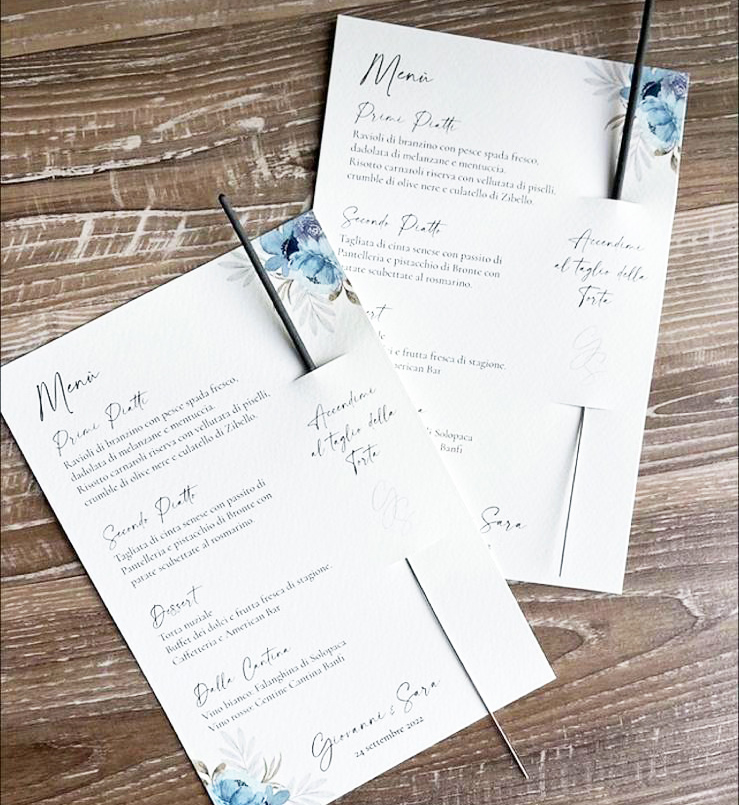 Menù
Primi Piatti
Ravioli di branzino con pesce spada fresco,
dadolata di melanzane e mentuccia.
Risotto carnaroli riserva con vellutata di piselli,
crumble di olive nere e culatello di Zibello.
Secondo Piatto
Tagliata di cinta senese con passito di
Pantelleria e pistacchio di Bronte con
patate scubettate al rosmarino.
Dessert
Torta nuziale
Buffet dei dolci e frutta fresca di stagione.
Caffetteria e American Bar
Dalla Cantina
Vino bianco: Falanghina di Solopaca
Vino rosso: Centine Cantina Banfi
Giovanni & Sara
24 settembre 2022
Accendimi
al taglio della
Torta
G&S
Menù
Primi Piatti
Ravioli di branzino con pesce spada fresco,
dadolata di melanzane e mentuccia.
Risotto carnaroli riserva con vellutata di piselli,
crumble di olive nere e culatello di Zibello.
Secondo Piatto
Tagliata di cinta senese con passito di
Pantelleria e pistacchio di Bronte con
patate scubettate al rosmarino.
rt
ci e frutta fresca di stagione.
merican Bar
di Solopaca
Banfi
Sara
Accendimi
al taglio della
Torta
G&S